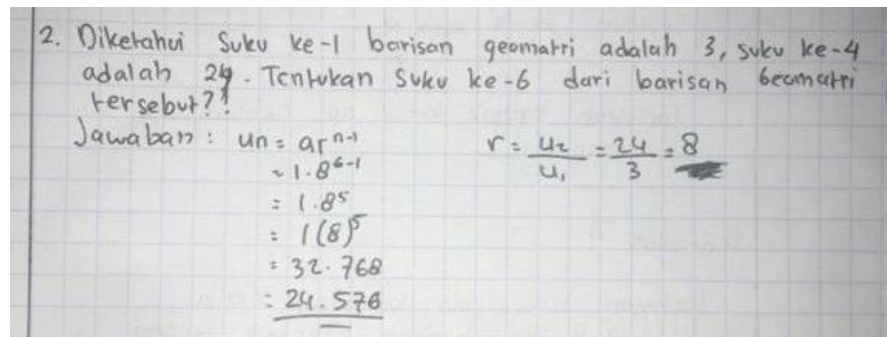 2. Diketahui Suku ke-1 barisan geomatri adalah 3, suku ke-4
adalah 24. Tentukan Suku ke-6 dari barisan Geomatri
tersebut??
Jawaban : un = ar^n-1
r = U2/U1 = 24/3 = 8
= 1.8^6-1
= 1.8^5
= 1(8)^5
= 32.768
= 24.576